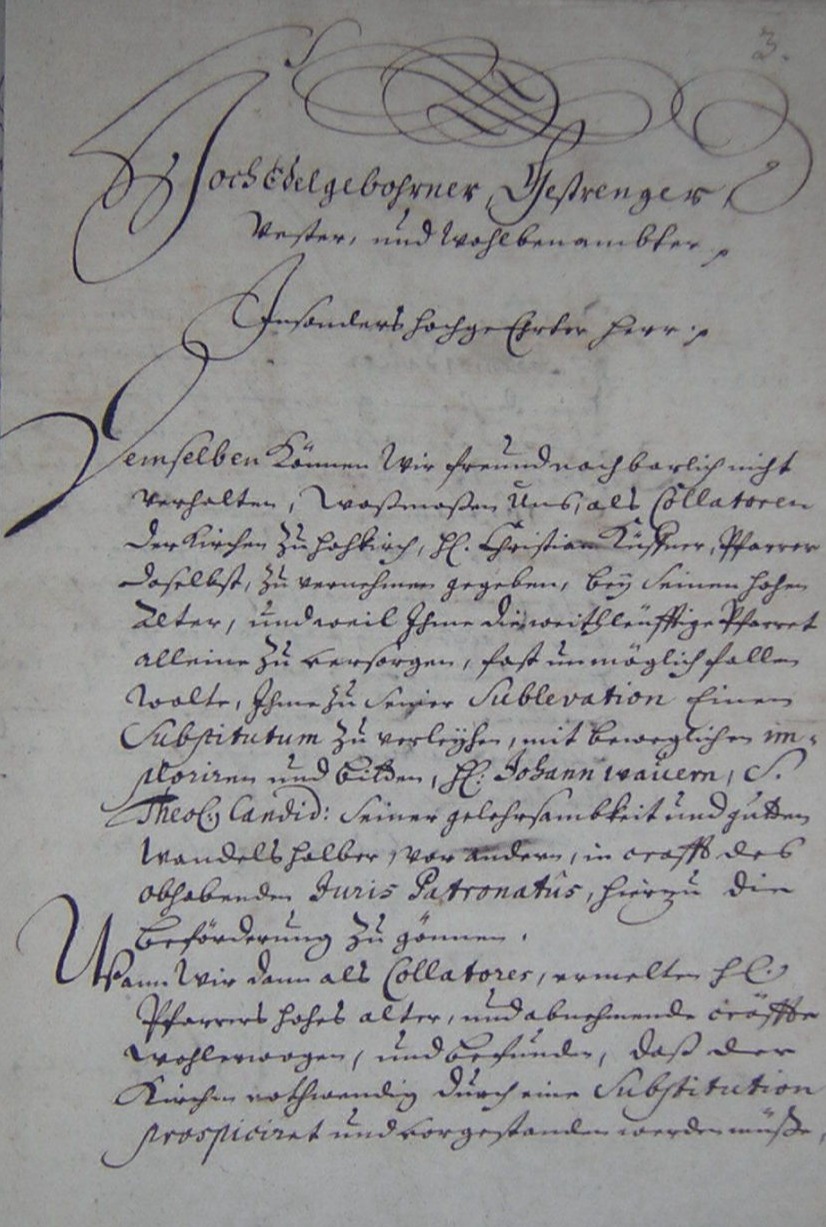 3.
HochEdelgebohrner, Gestrenger,
Vester, und Wohlbenambter p
Insonders hochgeEhrter Herr p
Demselben Können Wir freundnachbarlich nicht
verhalten, Waßmaßen Uns, als Collatoren
der Kirchen zu Hohkirch, H. Christian Küffner, Pfarrer
daselbst, zu vernehmen gegeben, beÿ seinen hohen
Alter, und weil Ihme die weithleüfftige Pfarret
alleine zu versorgen, fast unmöglich fallen
wolte, Ihme zu seiner Sublevation Einen
Substitutum zu verleÿhen, mit beweglichen im-
ploriren und bitten, H. Johann Wauern, S.
Theol. Candid: seiner gelehrsambkeit und gutten
Wandels halber, vor andern, in crafft des
obhabenden Juris Patronatûs, hierzu die
beförderung zu gönnen.
Wann Wir dann als Collatores, ermelten H.
Pfarrers hohes alter, und abnehmende cräffte
wohlerwogen, und befunden, daß der
Kirchen nothwendig durch eine Substitution
prospiciret und vorgestanden werden müße,